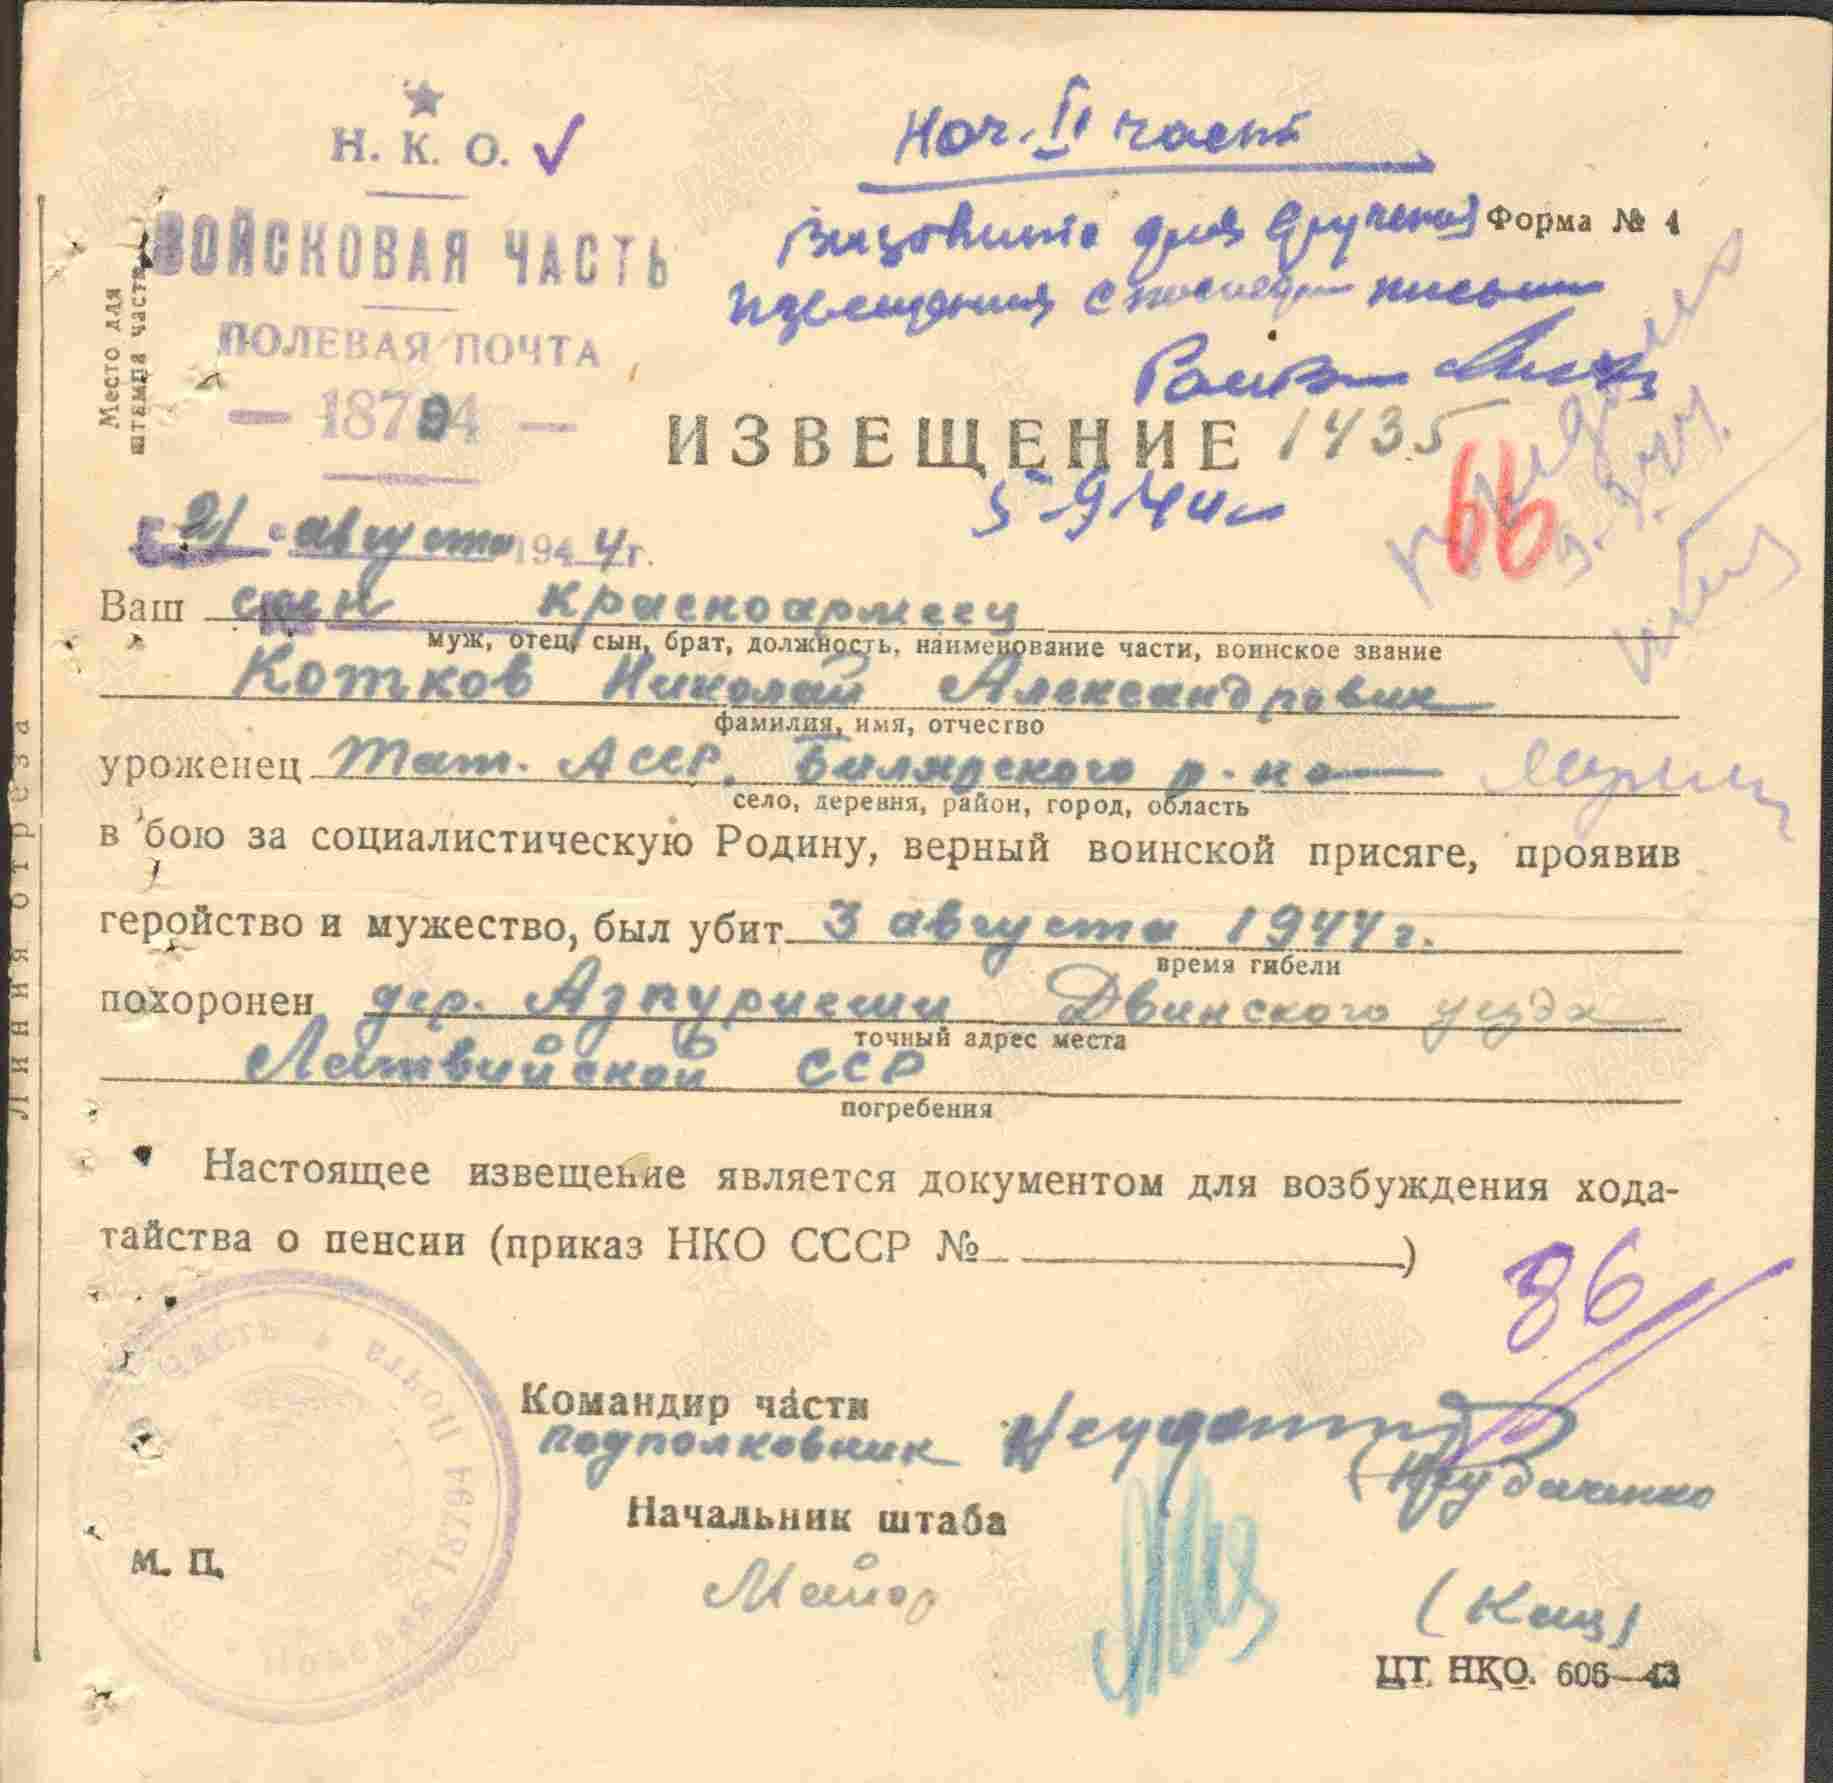 Н. К. О.
Нач. II части
ВОЙСКОВАЯ ЧАСТЬ
Форма № 1
для вручения
извещения с последн
ПОЛЕВАЯ ПОЧТА
Место для
штемпа части
— 18794 —
ИЗВЕЩЕНИЕ 1435
5-9-44
66
21 августа 1944 г.
Ваш сын красноармеец
муж, отец, сын, брат, должность, наименование части, воинское звание
Котков Николай Александрович
фамилия, имя, отчество
уроженец Тат. АССР, Билярского р-на
село, деревня, район, город, область
в бою за социалистическую Родину, верный воинской присяге, проявив
геройство и мужество, был убит 3 августа 1944 г.
время гибели
похоронен дер. Азпуриеши Двинского уезда
точный адрес места
Латвийской ССР
погребения
Линия отреза
Настоящее извещение является документом для возбуждения хода-
тайства о пенсии (приказ НКО СССР № )
36
Командир части
подполковник
(Неудаченко
Начальник штаба
Майор
(Кац)
М. П.
ЦТ. НКО. 606—43